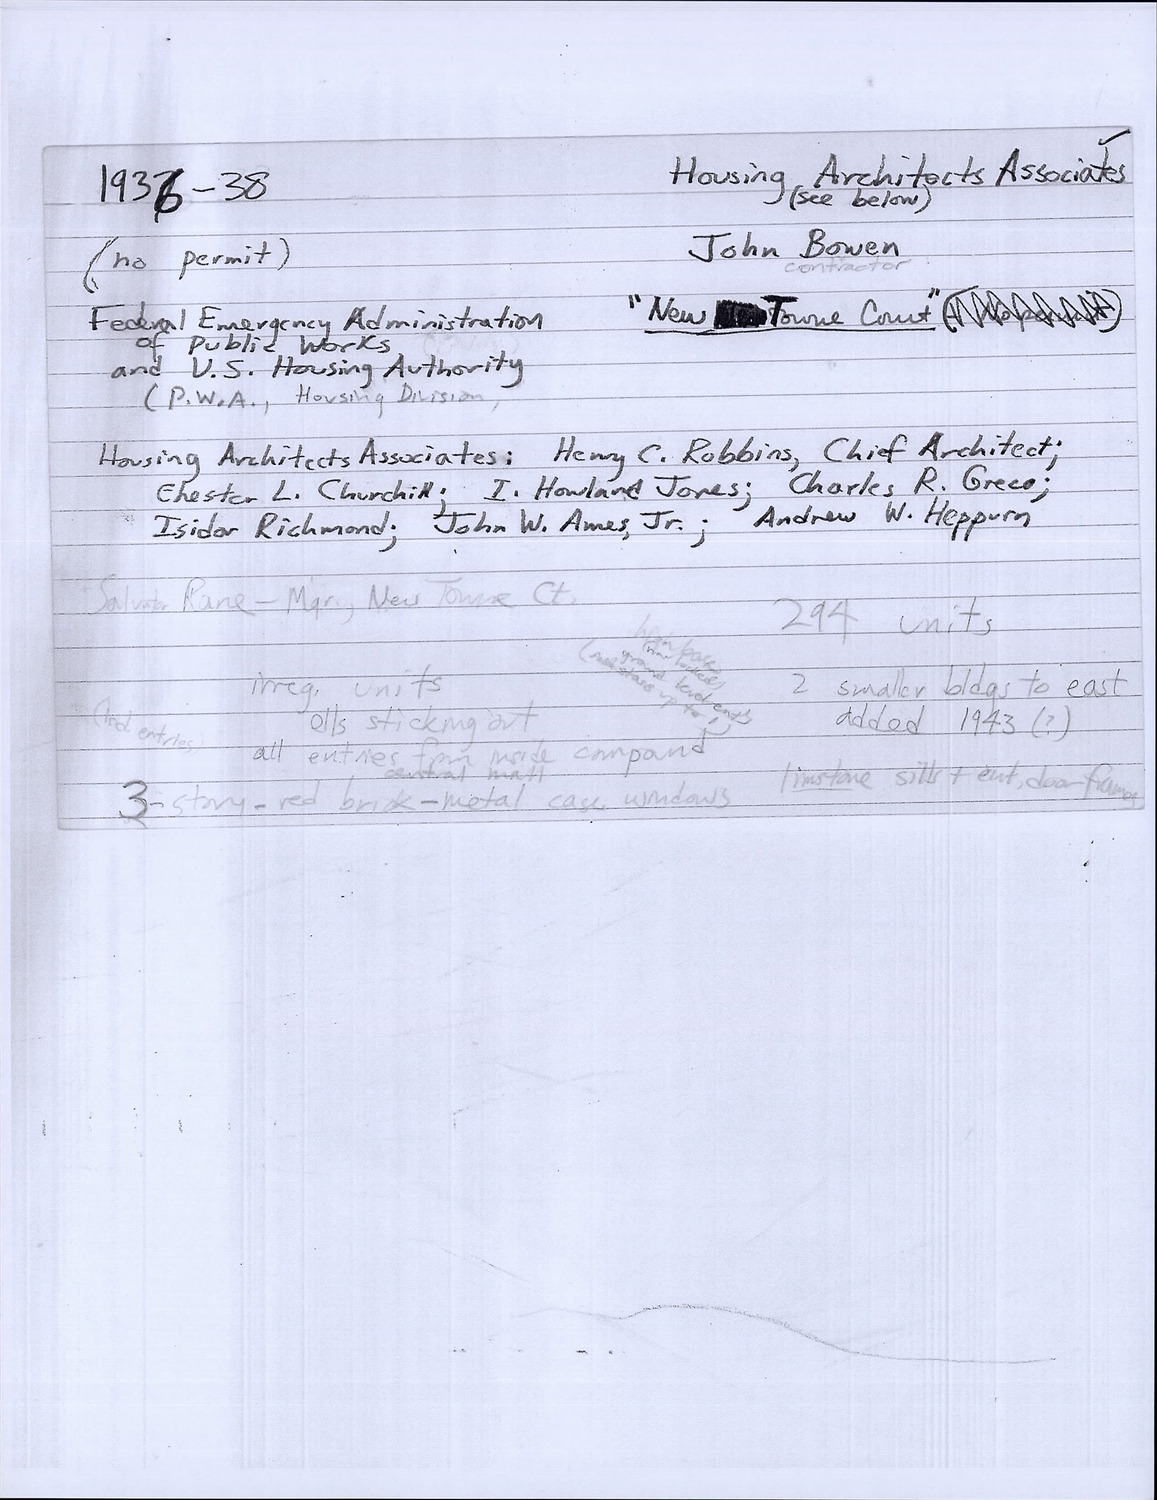 1936-38
Housing Architects Associates
(see below)
(no permit)
John Bowen
contractor
"New Towne Court"
Federal Emergency Administration
of Public Works
and U.S. Housing Authority
(P.W.A., Housing Division,
Housing Architects Associates: Henry C. Robbins, Chief Architect;
Chester L. Churchill; I. Howland Jones; Charles R. Greco;
Isidor Richmond; John W. Ames, Jr.; Andrew W. Heppurn
Mgr., New Towne Ct.
294 units
irreg. units
2 smaller bldgs to east
(ind. entries)
ells sticking out
added 1943 (?)
all entries from inside compound
central mall
limstone sills + ent, door frames
3-story - red brick - metal case windows
ground level ent's